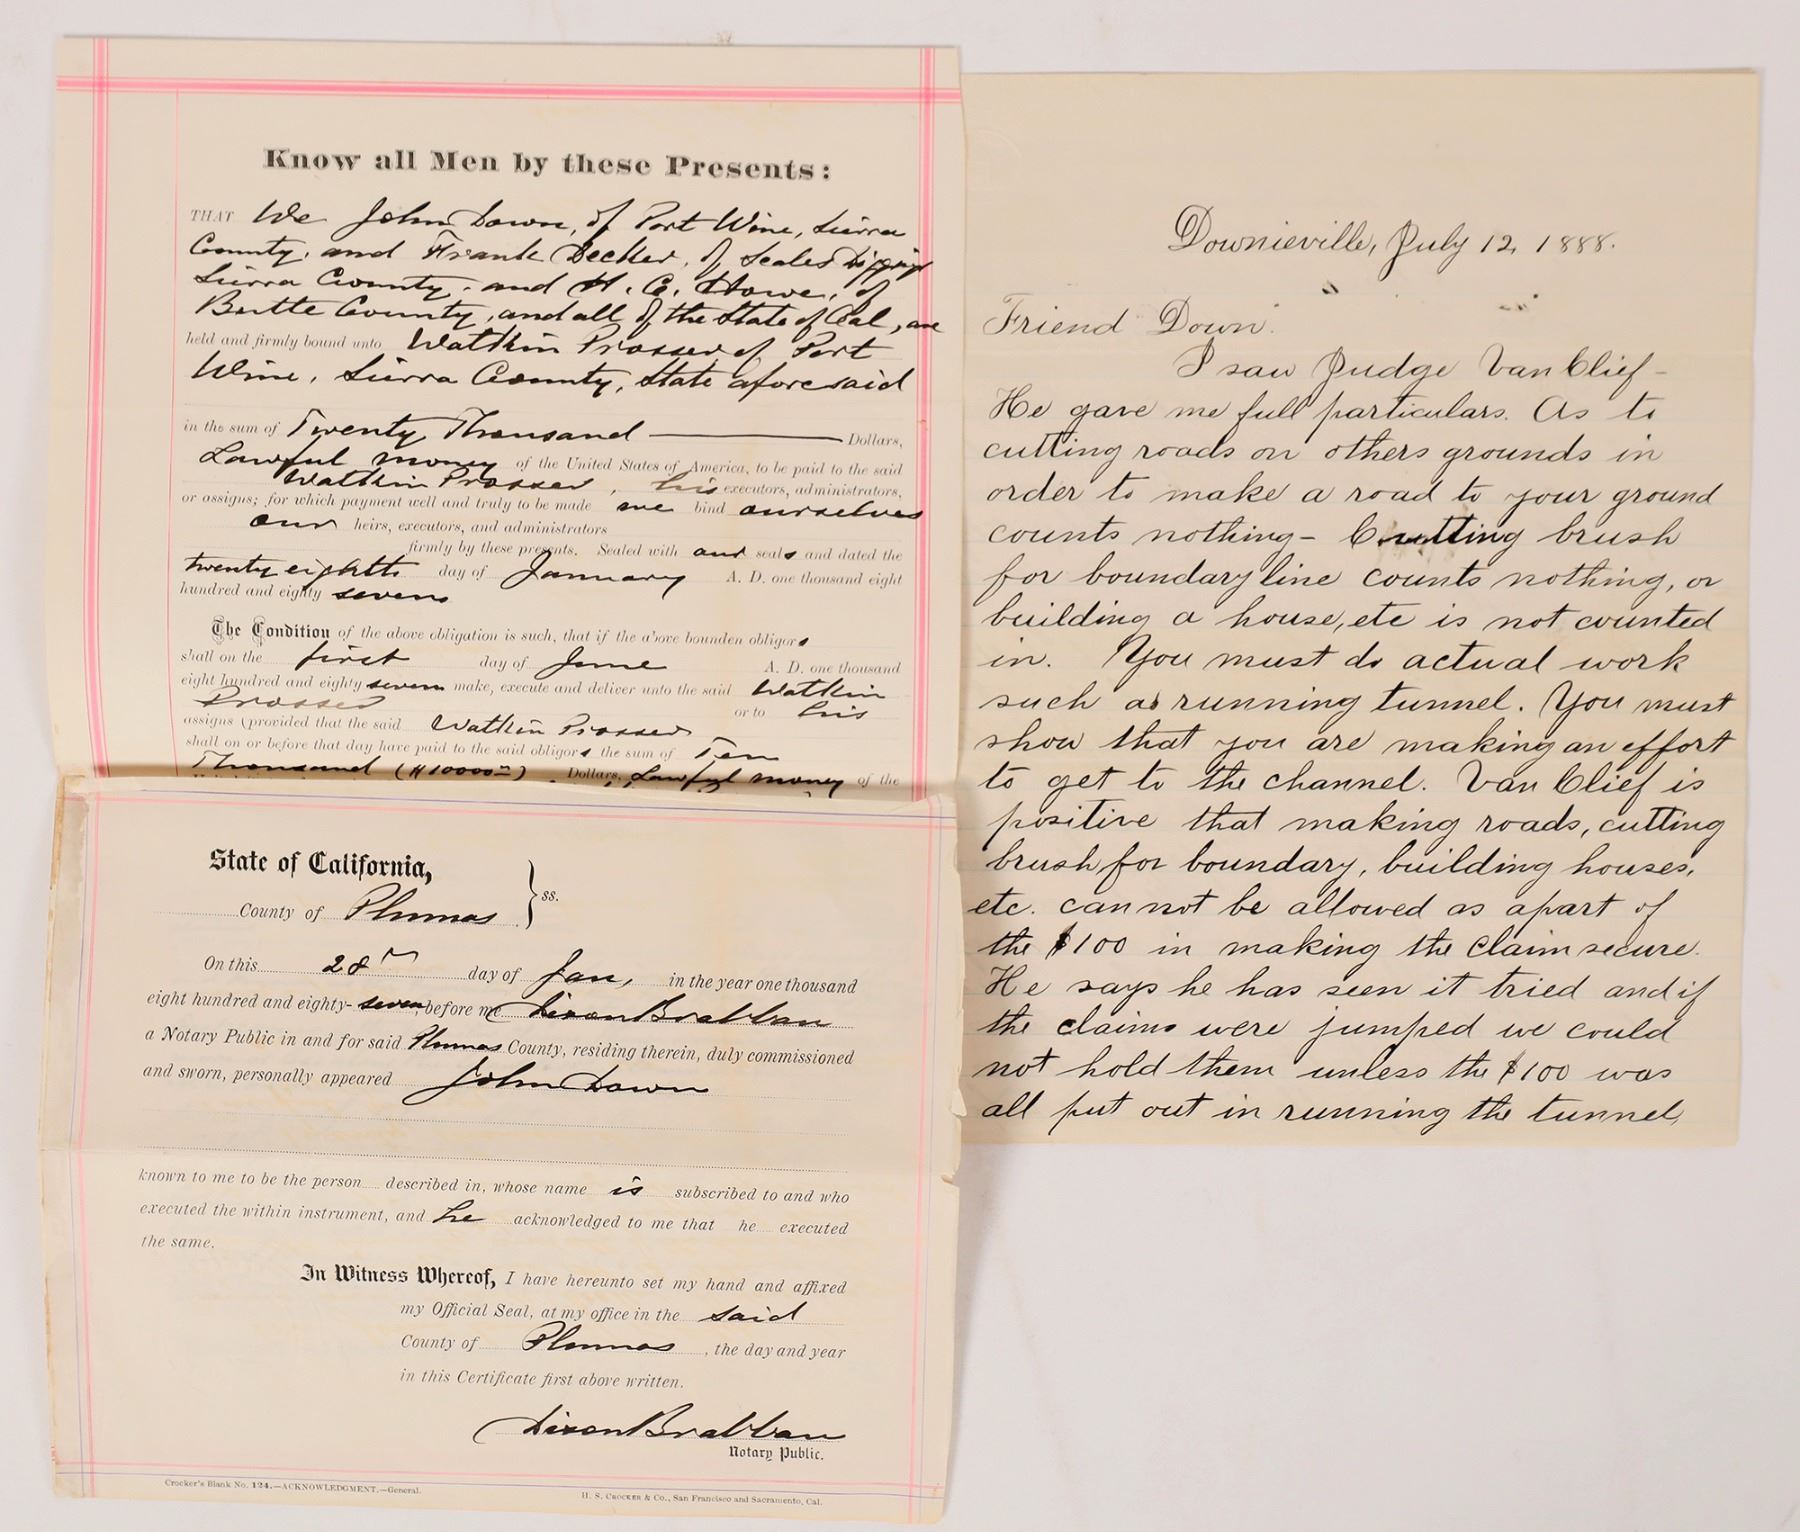 Know all Men by these Presents:
THAT We John Down, of Port Wine, Sierra
County, and Frank Decker, of Scales Diggings
Sierra County, and H. C. Howe, of
Butte County, and all of the State of Cal, are
held and firmly bound unto Watkin Prosser of Port
Wine, Sierra County, State aforesaid
in the sum of Twenty Thousand Dollars,
Lawful money of the United States of America, to be paid to the said
Watkin Prosser, his executors, administrators,
or assigns; for which payment well and truly to be made we bind ourselves
our heirs, executors, and administrators
firmly by these presents. Sealed with our seals and dated the
twenty eighth day of January A. D. one thousand eight
hundred and eighty seven
The Condition of the above obligation is such, that if the above bounden obligors
shall on the first day of June A. D. one thousand
eight hundred and eighty seven make, execute and deliver unto the said Watkin
Prosser or to his
assigns (provided that the said Watkin Prosser
shall on or before that day have paid to the said obligors the sum of Ten
Thousand ($10000 00) Dollars, Lawful money of the
State of California,
County of Plumas } ss.
On this 28th day of Jan, in the year one thousand
eight hundred and eighty-seven, before me Dixon Brabban
a Notary Public in and for said Plumas County, residing therein, duly commissioned
and sworn, personally appeared John Down
known to me to be the person described in, whose name is subscribed to and who
executed the within instrument, and he acknowledged to me that he executed
the same.
In Witness Whereof, I have hereunto set my hand and affixed
my Official Seal, at my office in the said
County of Plumas, the day and year
in this Certificate first above written.
Dixon Brabban
Notary Public.
Crocker's Blank No. 124.—ACKNOWLEDGMENT.—General.
H. S. CROCKER & Co., San Francisco and Sacramento, Cal.
Downieville, July 12, 1888.
Friend Down.
I saw Judge Van Clief -
He gave me full particulars. As to
cutting roads on others grounds in
order to make a road to your ground
counts nothing - Cutting brush
for boundary line counts nothing, or
building a house, etc is not counted
in. You must do actual work
such as running tunnel. You must
show that you are making an effort
to get to the channel. Van Clief is
positive that making roads, cutting
brush for boundary, building houses,
etc. cannot be allowed as apart of
the $100 in making the claim secure.
He says he has seen it tried and if
the claims were jumped we could
not hold them unless the $100 was
all put out in running the tunnel,